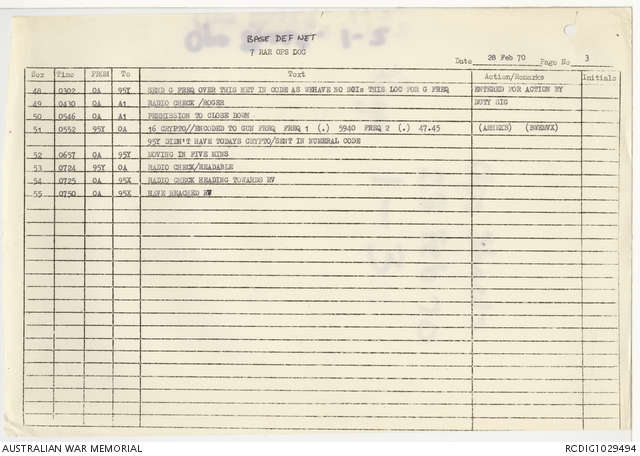 BASE DEF NET
7 RAR OPS LOG
Date 28 Feb 70 Page No 3
Ser Time FROM To Text Action/Remarks Initials
48 0302 0A 95Y SEND G FREQ OVER THIS NET IN CODE AS WEHAVE NO SGIs THIS LOC FOR G FREQ ENTERED FOR ACTION BY
49 0430 0A A1 RADIO CHECK /ROGER DUTY SIG
50 0546 0A A1 PERMISSION TO CLOSE DOWN
51 0552 95Y 0A 16 CRYPTO//ENCODED TO GUN FREQ FREQ 1 (.) 5940 FREQ 2 (.) 47.45
95Y DIDN'T HAVE TODAYS CRYPTO/SENT IN NUMERAL CODE
52 0657 0A 95Y MOVING IN FIVE MINS
53 0724 95Y 0A RADIO CHECK/READABLE
54 0725 0A 95X RADIO CHECK HEADING TOWARDS RV
55 0750 0A 95X HAVE REACHED RV
AUSTRALIAN WAR MEMORIAL RCDIG1029494